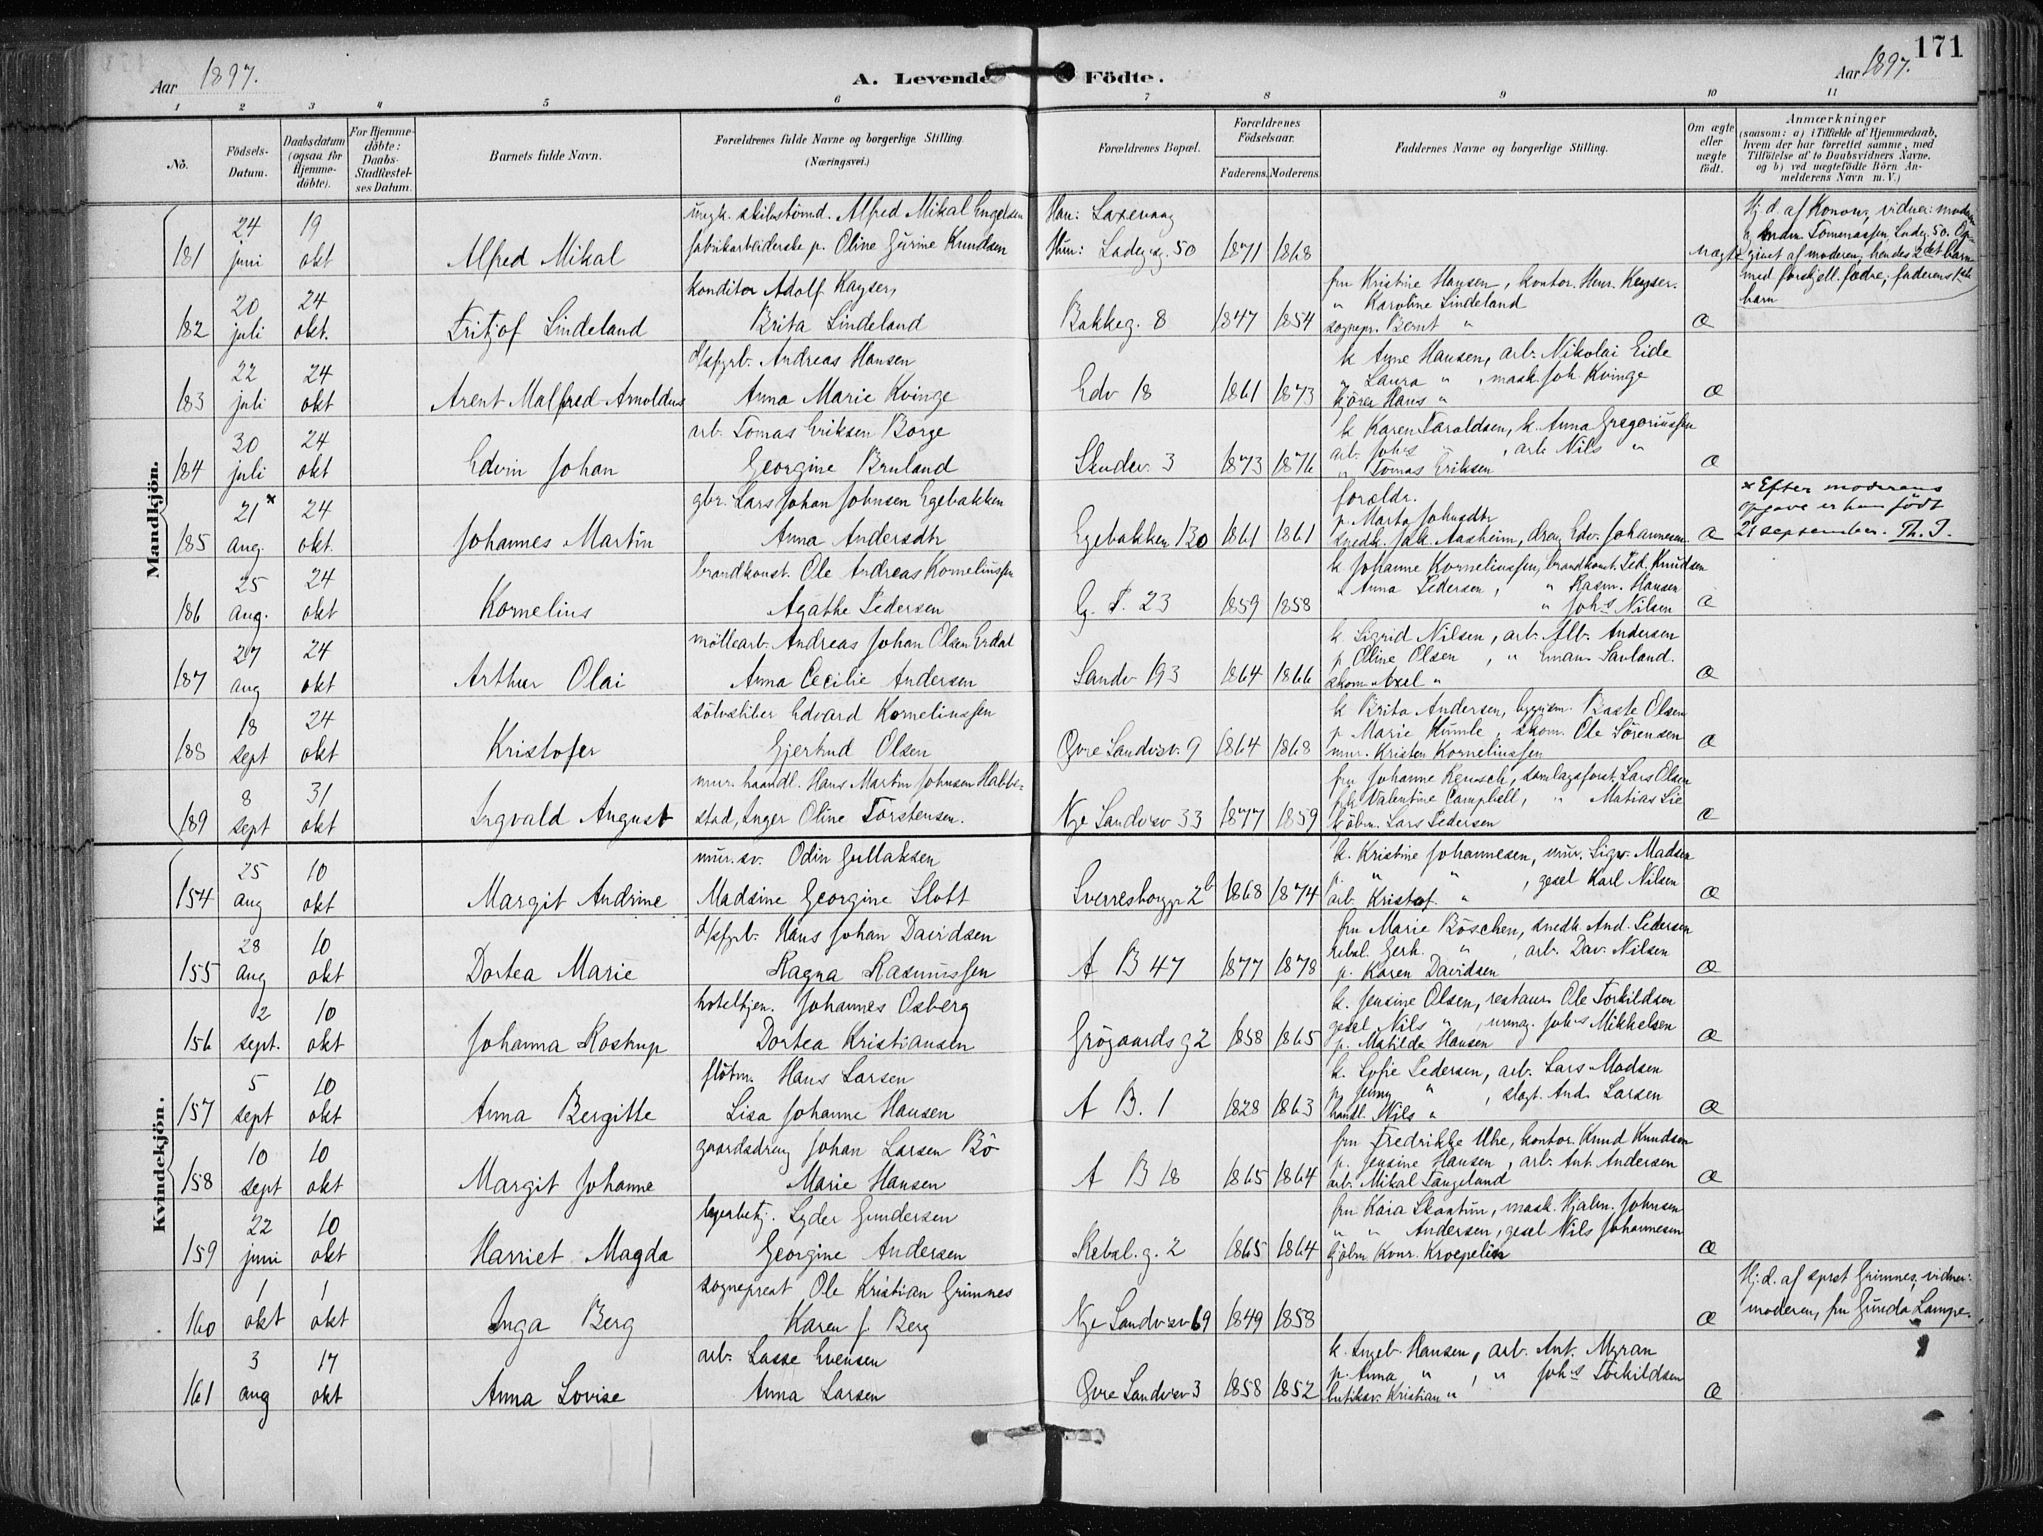 171
Aar 1897.
A. Levende Födte.
Aar 1897.
1 2 3 4 5 6 7 8 9 10 11
No.
Födsels-Datum.
Daabsdatum (ogsaa for Hjemme-döbte).
For Hjemme-döbte: Daabs-Stadfæstel-ses Datum.
Barnets fulde Navn.
Forældrenes fulde Navne og borgerlige Stilling.
(Næringsvei.)
Forældrenes Bopæl.
Forældrenes Födselsaar.
Faderens. Moderens.
Faddernes Navne og borgerlige Stilling.
Om ægte eller uægte födt.
Anmærkninger
(saasom: a) i Tilfælde af Hjemmedaab, hvem der har forrettet samme, med Tilföielse af to Daabsvidners Navne. og b) ved uægtefödte Börn An-melderens Navn m. V.)
Mandkjön.
181 24 juni 19 okt Alfred Mikal
ungk. skibstömd. Alfred Mikal Engelsen
fabrikarbeiderske p. Oline Gurine Knudsen
Han: Laxevaag
Hun: Ladeg.g. 50 1871 1868
uægte
Hj. d. af Konow, vidner: moderen
Tomerassen Ladeg. 50. Op-
givet af moderen, hendes 2det barn
med forskjell. fædre, faderens 1ste
barn
182 20 juli 24 okt. Fritjof Lindeland
konditor Adolf Kayser,
Brita Lindeland
Bakkeg. 8 1847 1854
fru Kristine Hansen, kontor. Henr. Keyser.
" Karoline Lindeland
sognepr. Bernt "
æ
183 22 juli 24 okt Arent Malfred Arnoldus
d/sfyrb. Andreas Hansen
Anna Marie Kvinge
Edv 18 1861 1873
k Anne Hansen, arb. Nikolai Eide
" Laura " , mask. Joh. Kvinge
kjörer Hans "
æ
184 30 juli 24 okt Edvin Johan
arb. Tomas Eriksen Borge
Georgine Bruland
Skudev. 3 1873 1876
k Karen Taraldsen, k. Anna Gregoriussen
arb. Johs " , arb. Nils "
" Tomas Eriksen
æ
185 21 x aug. 24 okt. Johannes Martin
gbr. Lars Johan Johnsen Egebakken
Anna Andersdtr
Egebakken 130 1861 1861
forældr.
p. Marta Johnsdtr
snedk. Jak. Aasheim, dreng Edv. Johannesen
æ
x Efter moderens
opgave er han födt
21 september. Th. J.
186 25 aug. 24 okt Kornelius
brandkonst. Ole Andreas Korneliussen
Agathe Pedersen
G. P. 23 1859 1858
k Johanne Korneliussen, brandkonst. Ped. Knudsen
" Anna Pedersen, " Rasm. Hansen
" Johs Nilsen
æ
187 27 aug 24 okt Arthur Olai
möllearb. Andreas Johan Olsen Erdal
Anna Cecilie Andersen
Sandv 193 1864 1866
k. Sigrid Nilsen, arb. Alb. Andersen
p Oline Olsen , " Eman. Savland.
skom. Axel "
æ
188 18 sept 24 okt Kristofer
sölvstiber Edvard Korneliussen
Gjertrud Olsen
Övre Sandvsv. 9 1864 1868
k Brita Andersen, bygism. Baste Olsen
p Marie Humle, skom. Ole Sörensen
mur. Kristen Korneliussen
æ
189 8 sept 31 okt Ingvald August
mur. haandl. Hans Martin Johnsen Habbe-
stad, Inger Oline Torstensen.
Nye Sandvsv 33 1877 1859
fru Johanne Reusch, samlagsforst. Lars Olsen
Valentine Campbell, " Matias Lie
kjöbm. Lars Pedersen
æ
Kvindekjön.
154 25 aug 10 okt Margit Andrine
mur. sv. Odin Gullaksen
Madsine Georgine Slott
Sverresborgg 2b 1868 1874
k. Kristine Johannesen, mur. Sigv. Madsen
p. " " , gesel Karl Nilsen
arb. Kristof. "
æ
155 28 aug 10 okt Dortea Marie
d/sfyrb. Hans Johan Davidsen
Ragna Rasmussen
A B 47 1877 1878
fru Marie Böschen, snedk. And. Pedersen
rebsl. Gerh. " , arb. Dav. Nilsen
p. Karen Davidsen
æ
156 2 sept. 10 okt Johanna Rostrup
hotelkjen. Johannes Osberg
Dortea Kristiansen
Grögaardsg 2 1858 1865
k. Jensine Olsen, restaur. Ole Torkildsen
gesel Nils " , urmag. Johs Mikkelsen
p. Matilde Hansen
æ
157 5 sept 10 okt Anna Bergitte
flötm. Hans Larsen
Lisa Johanne Hansen
A B. 1 1828 1863
k. Sofie Pedersen, arb. Lars Madsen
p. Jenny " , slagt. And. Larsen
handl. Nils "
æ
158 10 sept 10 okt Margit Johanne
gaardsdreng Johan Larsen Bö
Marie Hansen
A B 18 1865 1864
fru Fredrikke Uhe, kontor. Knud Knudsen
p. Jensine Hansen, arb. Ant. Andersen
arb. Mikal Tangeland
æ
159 22 juni 10 okt Harriet Magda
lagerbetj. Lyder Gundersen
Georgine Andersen
Rebsl.g. 2 1865 1864
fru Kaia Skantun, mask. Hjalm. Johnsen
" " Andersen, gesel Nils Johannesen
kjöbm Konr. Kroepelin
æ
160 1 okt 1 okt Inga Berg
sogneprest Ole Kristian Grimnes
Karen J. Berg
Nye Sandvsv 69 1849 1858
æ
Hj. d. af sprst Grimnes, vidner:
moderen, fru Gunda Lampe.
161 3 aug 17 okt Anna Lovise
arb. Lasse Evensen
Anna Larsen
Övre Sandvsv 3 1858 1852
k. Ingeb. Hansen, arb. Ant. Myran
p. Anna " , " Johs Torkildsen
butiksv. Kristian "
æ